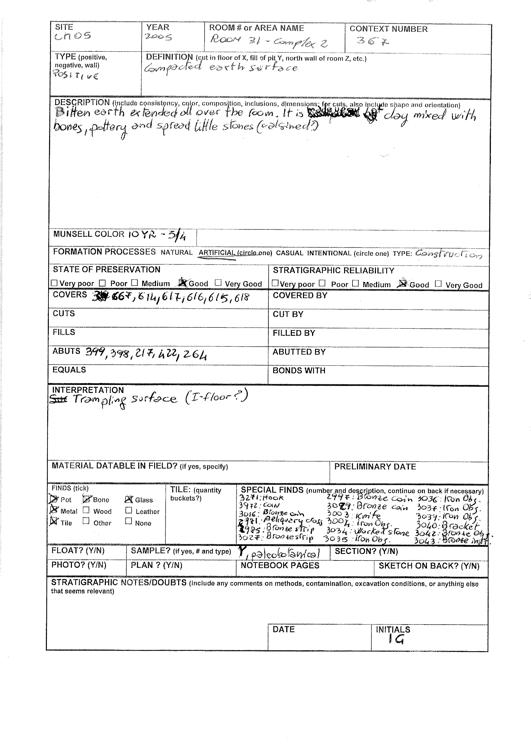 SITE
CMOS
YEAR
2005
ROOM # or AREA NAME
ROOM 31 - Complex 2
CONTEXT NUMBER
367
TYPE (positive, negative, wall)
POSITIVE
DEFINITION (cut in floor of X, fill of pit Y, north wall of room Z, etc.)
Compacted earth surface
DESCRIPTION (include consistency, color, composition, inclusions, dimensions; for cuts, also include shape and orientation)
Bitten earth extended all over the room. It is clay mixed with
bones, pottery and spread little stones (calsined?)
MUNSELL COLOR 10 YR - 5/4
FORMATION PROCESSES NATURAL ARTIFICIAL (circle one) CASUAL INTENTIONAL (circle one) TYPE: Construction
STATE OF PRESERVATION
Very poor Poor Medium Good Very Good
STRATIGRAPHIC RELIABILITY
Very poor Poor Medium Good Very Good
COVERS 667, 614, 617, 616, 615, 618
COVERED BY
CUTS
CUT BY
FILLS
FILLED BY
ABUTS 399, 398, 217, 422, 264
ABUTTED BY
EQUALS
BONDS WITH
INTERPRETATION
Trampling surface (I-floor?)
MATERIAL DATABLE IN FIELD? (if yes, specify)
PRELIMINARY DATE
FINDS (tick)
Pot Bone Glass
Metal Wood Leather
Tile Other None
TILE: (quantity buckets?)
SPECIAL FINDS (number and description, continue on back if necessary)
3271: Hook
3972: Coin
3016: Bronze coin
2981: Reliquery cross
2985: Bronze strip
3027: Bronze strip
2997: Bronze coin
Bronze coin
3003: Knife
3004: Iron Obj.
3034: Worked stone
3035: Iron Obj.
3036: Iron Obj.
3037: Iron Obj.
3039: Iron Obj.
3040: Bracket
3042: Bronze Obj.
3043: Bronze
FLOAT? (Y/N)
SAMPLE? (if yes, # and type)
Y, paleobotanical
SECTION? (Y/N)
PHOTO? (Y/N)
PLAN ? (Y/N)
NOTEBOOK PAGES
SKETCH ON BACK? (Y/N)
STRATIGRAPHIC NOTES/DOUBTS (Include any comments on methods, contamination, excavation conditions, or anything else
that seems relevant)
DATE
INITIALS
IG